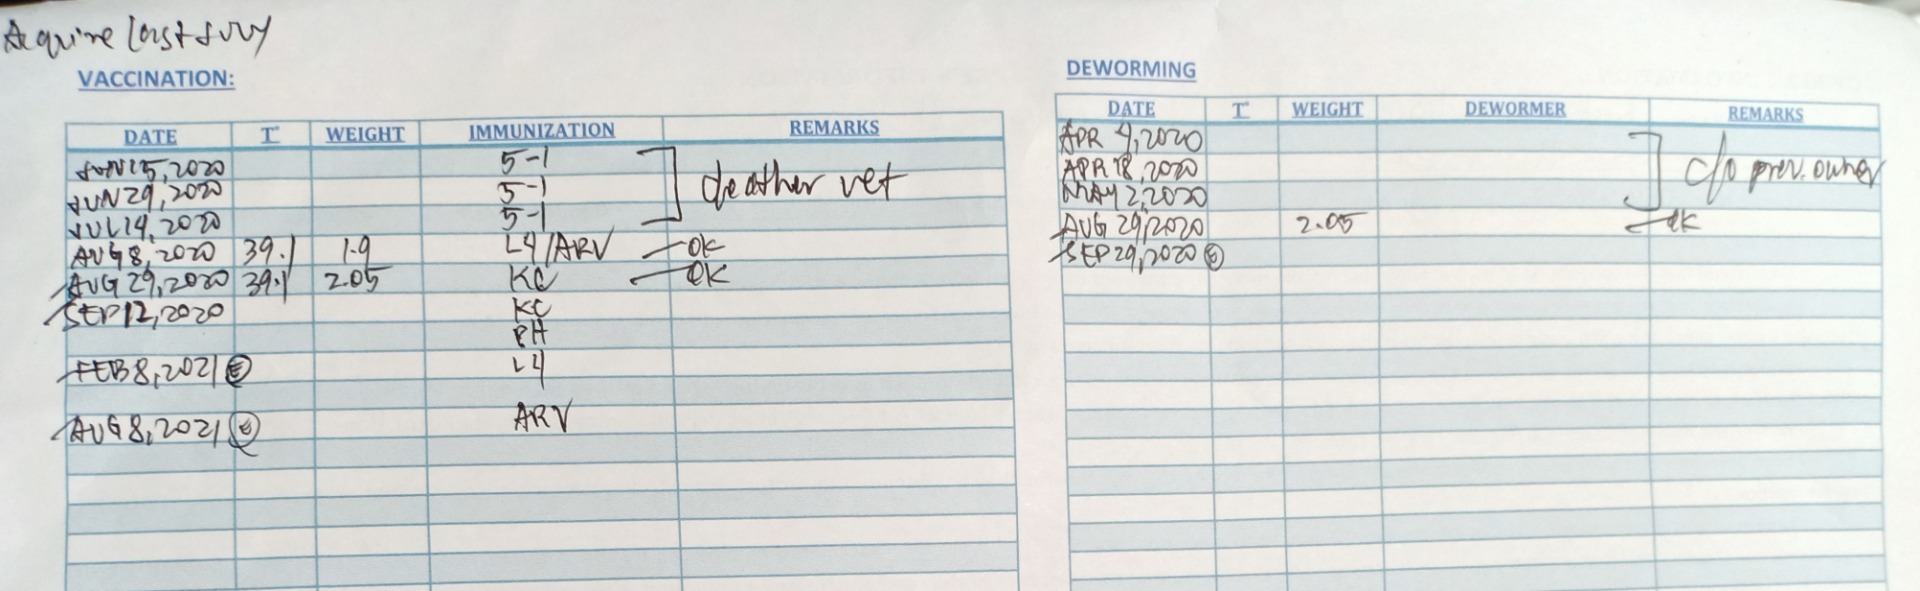 Acquire last
VACCINATION:
DATE T° WEIGHT IMMUNIZATION REMARKS
JUN 15, 2020 5-1
JUN 29, 2020 5-1 other vet
JUL 14, 2020 5-1
AUG 8, 2020 39.1 1.9 L4/ARV OK
AUG 29, 2020 39.1 2.05 KC OK
SEP 12, 2020 KC
PH
FEB 8, 2021 L4
AUG 8, 2021 ARV
DEWORMING
DATE T WEIGHT DEWORMER REMARKS
APR 4, 2020
APR 18, 2020 c/o prev. owner
MAY 2, 2020
AUG 29, 2020 2.05 OK
SEP 29, 2020